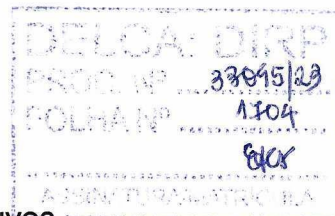 DELCA: DIRP
PROC. Nº 33095/23
FOLHA Nº 1704
ASSINATURA/MATRÍCULA
IVOS